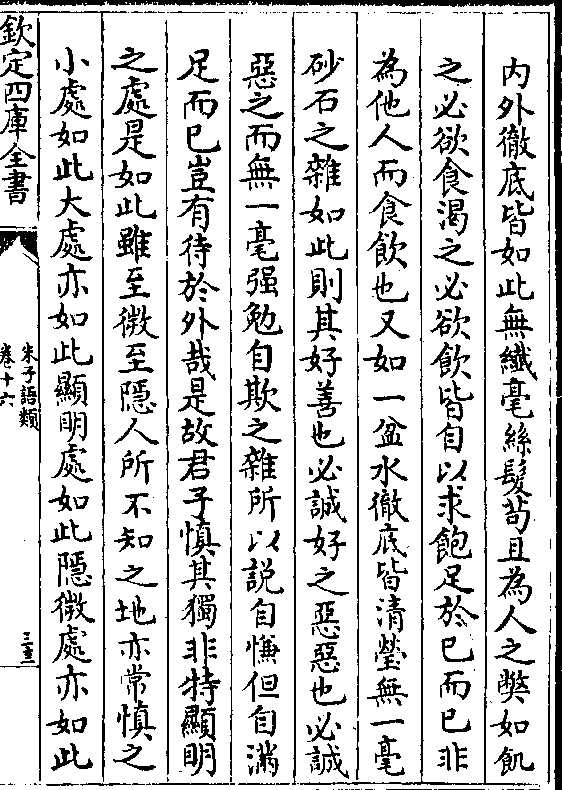 内外徹底皆如此無纎毫絲髮茍且為人之弊如飢
之必欲食渴之必欲飲皆自以求飽足於已而已非
為他人而食飲也又如一盆水徹底皆清瑩無一毫
砂石之雜如此則其好善也必誠好之惡惡也必誠
惡之而無一毫强勉自欺之雜所以説自慊但自滿
足而已豈有待於外哉是故君子慎其獨非特顯明
之處是如此雖至微至隱人所不知之地亦常慎之
小處如此大處亦如此顯明處如此隱微處亦如此
欽定四庫全書
朱子語類
卷十六